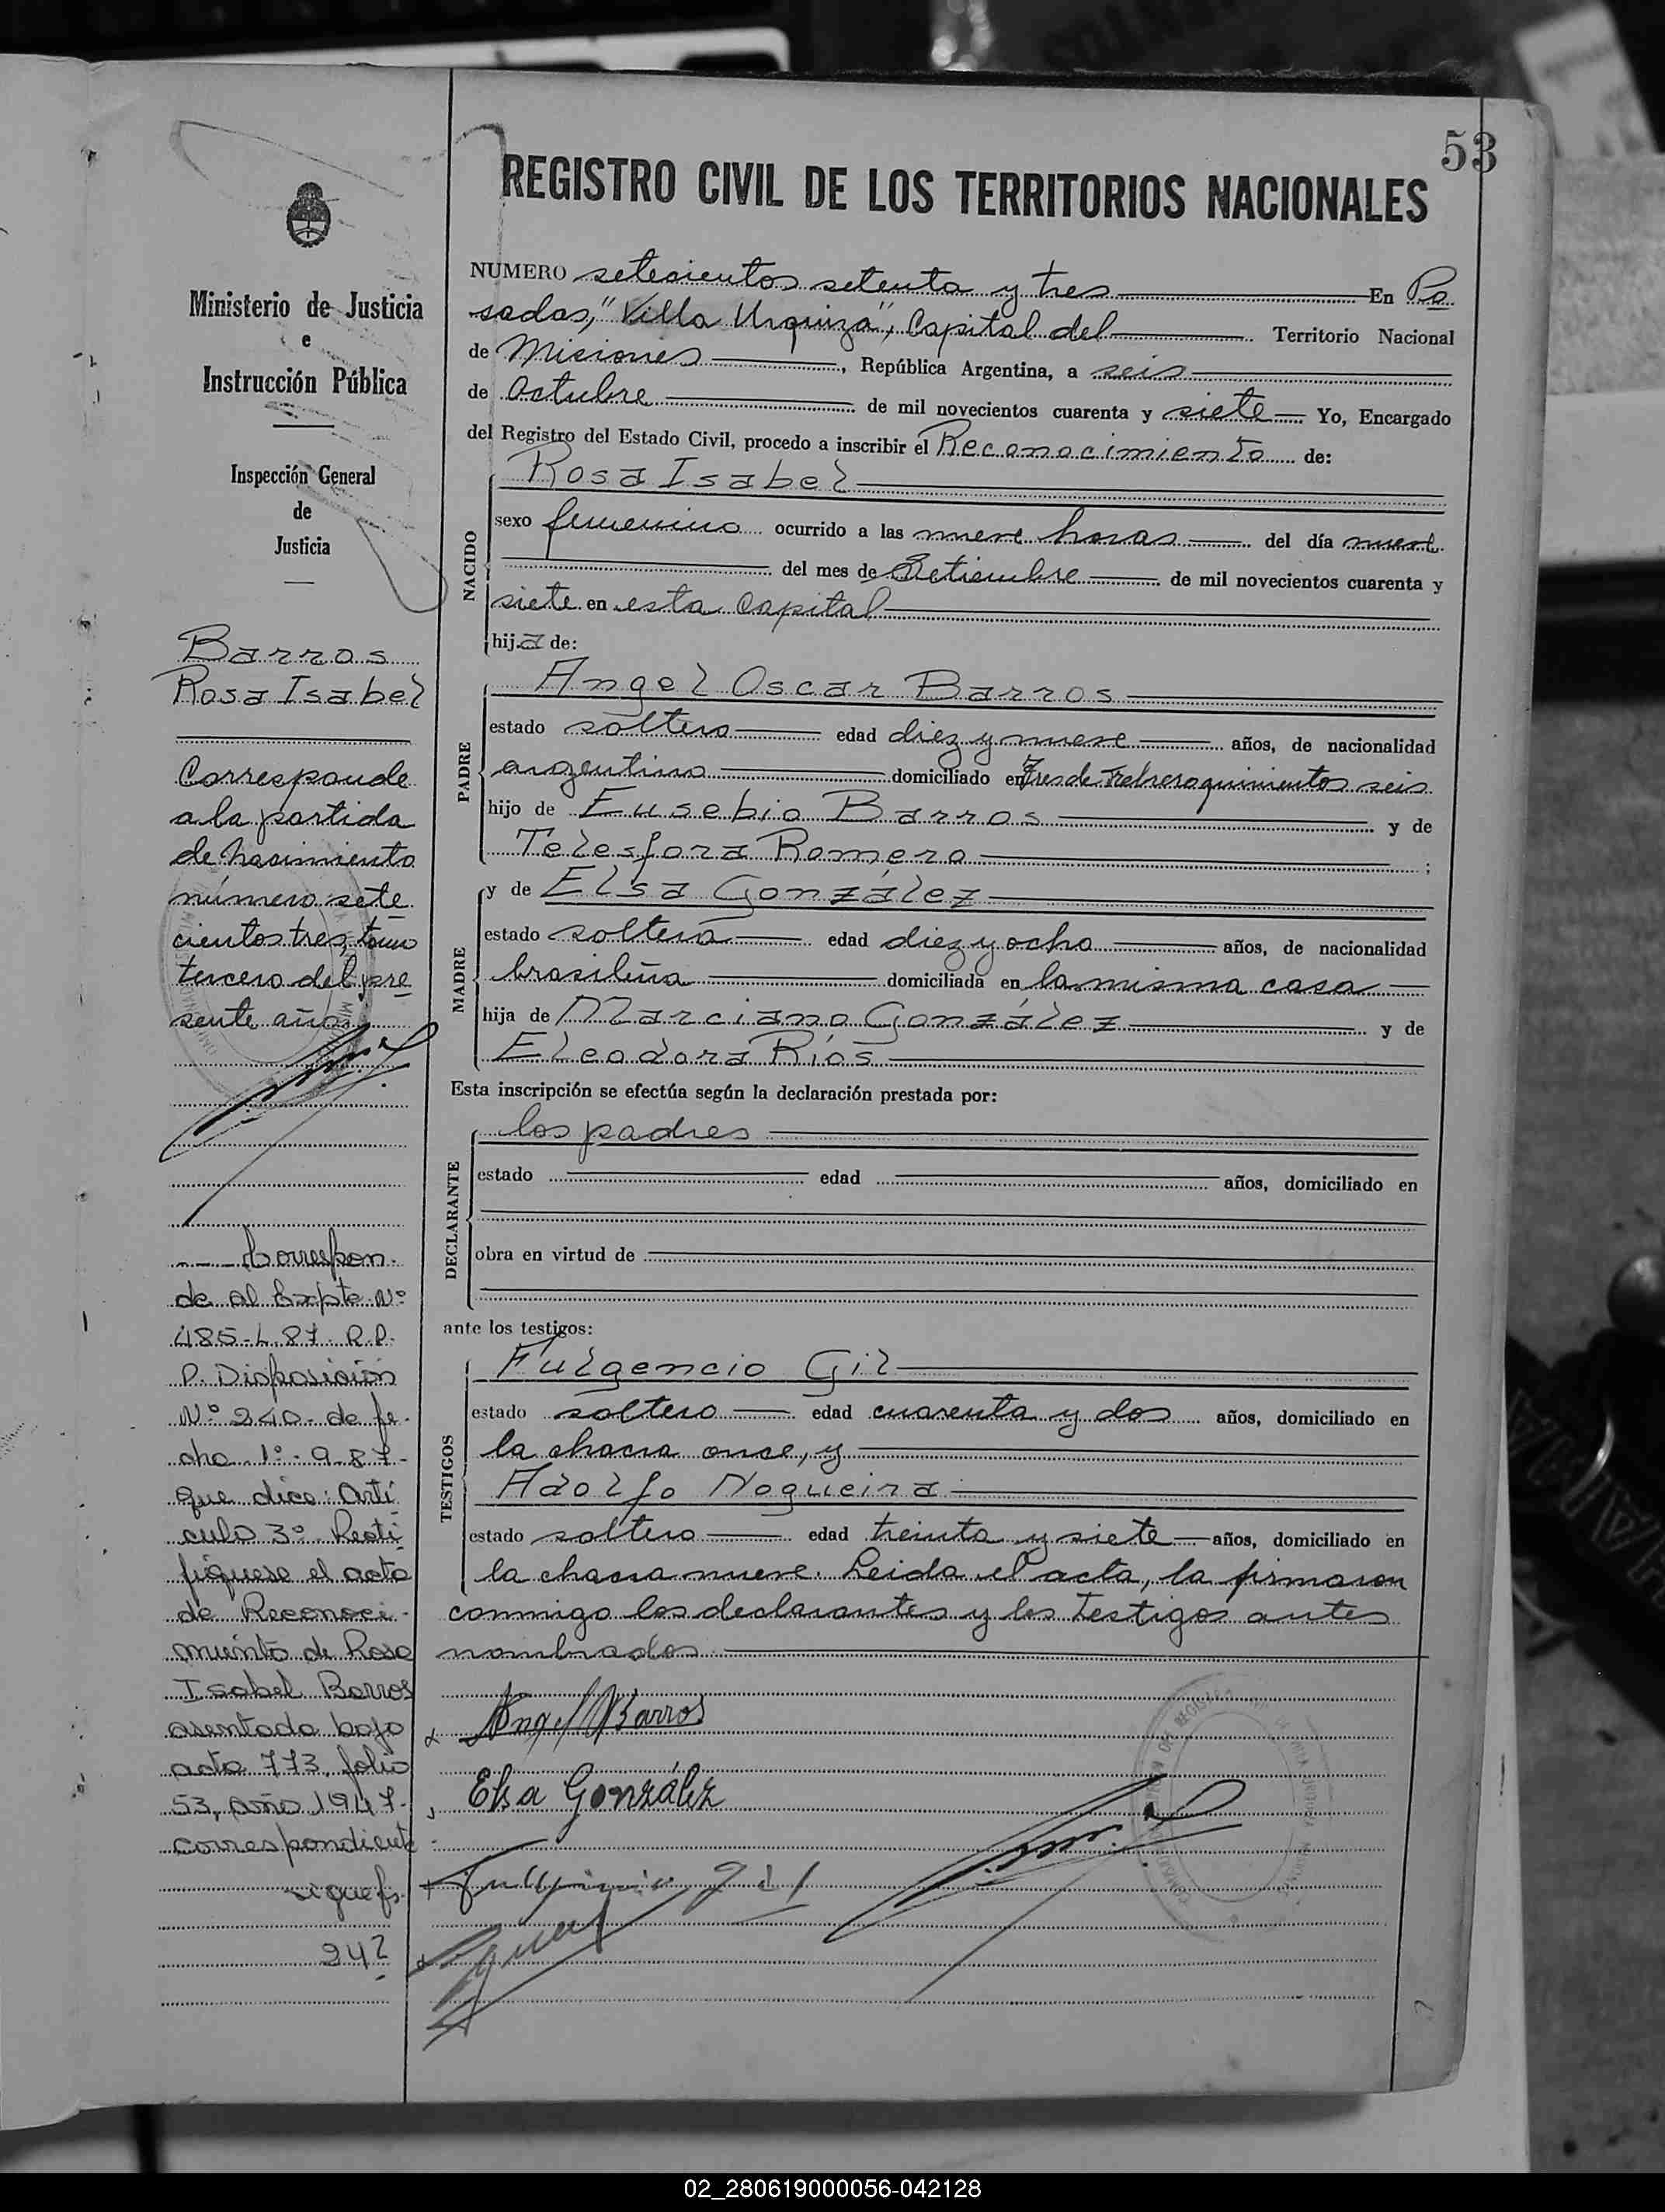 53
REGISTRO CIVIL DE LOS TERRITORIOS NACIONALES
Ministerio de Justicia
e
Instrucción Pública
Inspección General
de
Justicia
Barros
Rosa Isabel
Corresponde
a la partida
de nacimiento
número sete
cientos tres, tomo
tercero del pre
sente año
Correspon-
de al Expte Nº
485-L-87-R.P.
P. Disposición
Nº 240- de fe-
cha 1º-9-87-
que dice: Artí
culo 3º- Recti
fíquese el acta
de Reconoci-
miento de Rosa
Isabel Barros
asentada bajo
acta 773, folio
53, año 1947-
correspondiente
sigue fs.
247
NUMERO setecientos setenta y tres En Po
sadas, "Villa Urquiza", Capital del Territorio Nacional
de Misiones, República Argentina, a seis
de Octubre de mil novecientos cuarenta y siete Yo, Encargado
del Registro del Estado Civil, procedo a inscribir el Reconocimiento de:
NACIDO
Rosa Isabel
sexo femenino ocurrido a las nueve horas del día nueve
del mes de Setiembre de mil novecientos cuarenta y
siete en esta Capital
hija de:
PADRE
Angel Oscar Barros
estado soltero edad diez y nueve años, de nacionalidad
argentina domiciliado en Tres de Febrero quinientos seis
hijo de Eusebio Barros y de
Telesfora Romero ;
MADRE
y de Elsa González
estado soltera edad diez y ocho años, de nacionalidad
brasileña domiciliada en la misma casa
hija de Marciano González y de
Eleodora Ríos
Esta inscripción se efectúa según la declaración prestada por:
DECLARANTE
los padres
estado edad años, domiciliado en
obra en virtud de
ante los testigos:
TESTIGOS
Fulgencio Gil
estado soltero edad cuarenta y dos años, domiciliado en
la chacra once, y
Adolfo Nogueira
estado soltero edad treinta y siete años, domiciliado en
la chacra nueve. Leida el acta, la firmaron
conmigo los declarantes y los testigos antes
nombrados
Angel Barros
Elsa González
02_280619000056-042128